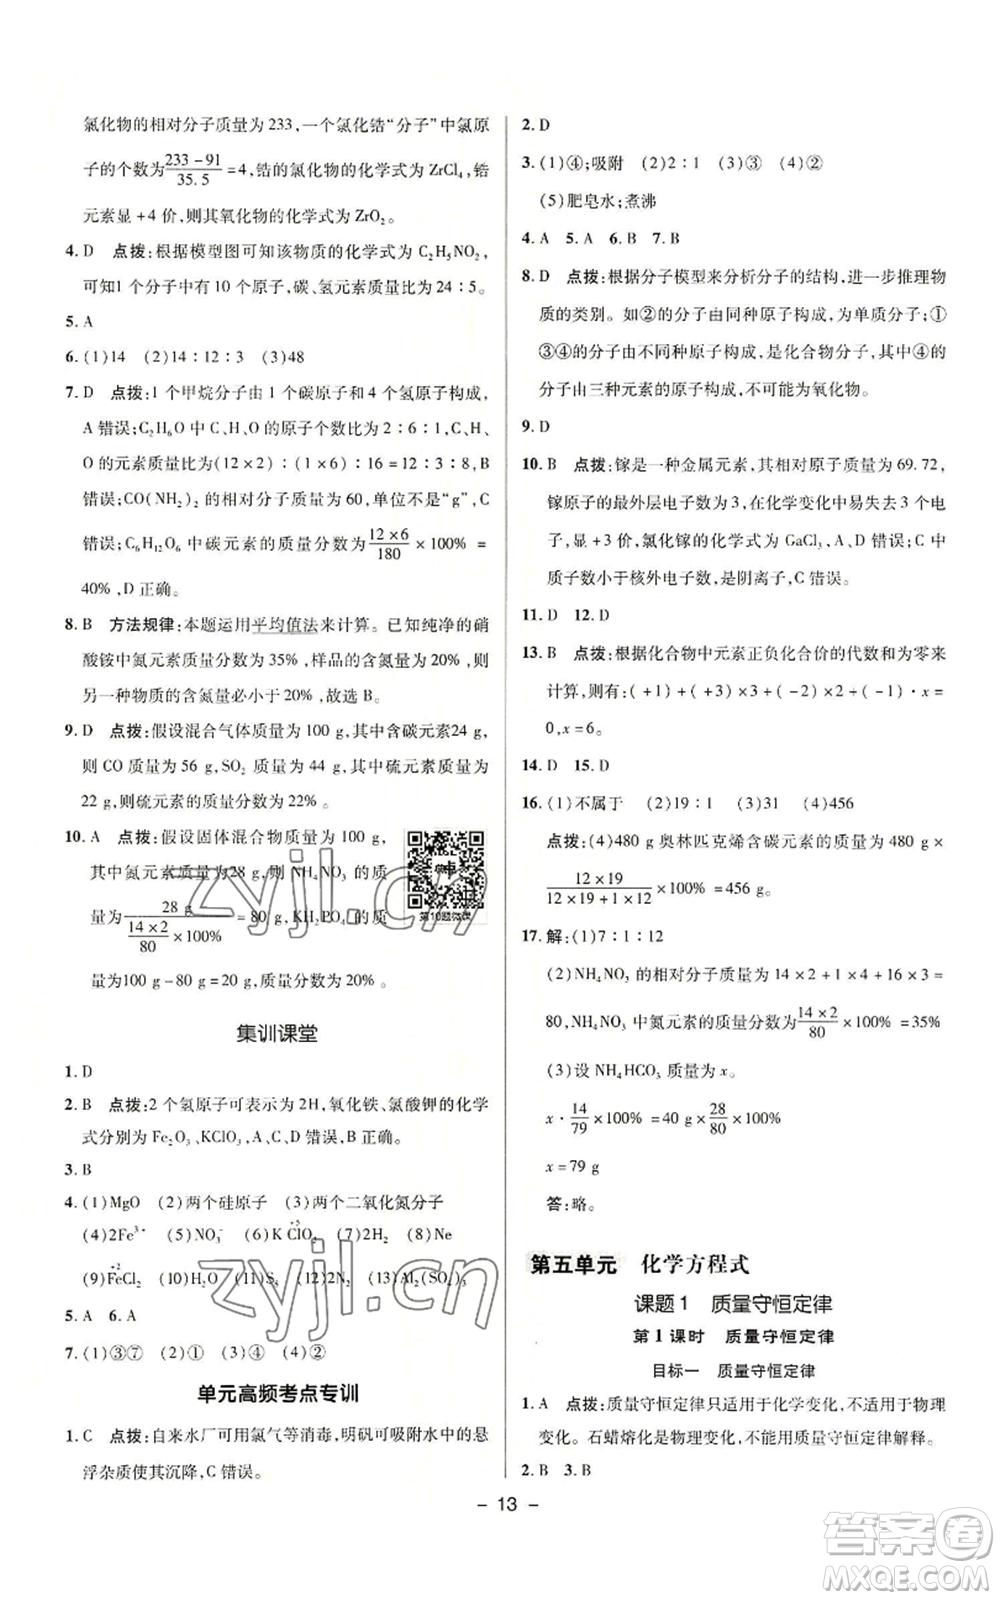 氯化物的相对分子质量为 233,一个氯化锆“分子”中氯原
子的个数为(233-91)/35.5=4,锆的氯化物的化学式为 ZrCl₄,锆
元素显 +4 价,则其氧化物的化学式为 ZrO₂。
4. D 点拨:根据模型图可知该物质的化学式为 C₂H₅NO₂,
可知1 个分子中有 10 个原子,碳、氢元素质量比为 24∶5。
5. A
6. (1)14 (2)14∶12∶3 (3)48
7. D 点拨:1 个甲烷分子由 1 个碳原子和 4 个氢原子构成,
A 错误;C₂H₆O 中 C、H、O 的原子个数比为 2∶6∶1,C、H、
O 的元素质量比为(12×2)∶(1×6)∶16=12∶3∶8,B
错误;CO(NH₂)₂ 的相对分子质量为 60,单位不是“g”,C
错误;C₆H₁₂O₆ 中碳元素的质量分数为(12×6)/180×100% =
40%,D 正确。
8. B 方法规律:本题运用平均值法来计算。已知纯净的硝
酸铵中氮元素质量分数为 35%,样品的含氮量为 20%,则
另一种物质的含氮量必小于 20%,故选 B。
9. D 点拨:假设混合气体质量为 100 g,其中含碳元素24 g,
则 CO 质量为 56 g,SO₂ 质量为 44 g,其中硫元素质量为
22 g,则硫元素的质量分数为 22%。
10. A 点拨:假设固体混合物质量为 100 g,
其中氮元素质量为28 g,则 NH₄NO₃ 的质
量为 28 g/((14×2)/80×100%)=80 g,KH₂PO₄ 的质
量为100 g-80 g=20 g,质量分数为 20%。
第10题微课
集训课堂
1. D
2. B 点拨:2 个氢原子可表示为 2H,氧化铁、氯酸钾的化学
式分别为 Fe₂O₃、KClO₃,A、C、D 错误,B 正确。
3. B
4. (1)MgO (2)两个硅原子 (3)两个二氧化氮分子
(4)2Fe³⁺ (5)NO₃⁻ (6)K Cl(+5)O₃ (7)2H₂ (8)Ne
(9)Fe(+2)Cl₂ (10)NH₃ (11)SO₂ (12)2N (13)Al₂(SO₄)₃
5. A 6. A
7. (1)③⑦ (2)① (3)⑥ (4)②
单元高频考点专训
1. C 点拨:自来水厂可用氯气等消毒,明矾可吸附水中的悬
浮杂质使其沉降,C 错误。
2. D
3. (1)④;吸附 (2)2∶1 (3)③ (4)②
(5)肥皂水;煮沸
4. A 5. A 6. B 7. B
8. D 点拨:根据分子模型来分析分子的结构,进一步推理物
质的类别。如②的分子由同种原子构成,为单质分子;①
③④的分子由不同种原子构成,是化合物分子,其中④的
分子由三种元素的原子构成,不可能为氧化物。
9. D
10. B 点拨:镓是一种金属元素,其相对原子质量为 69.72,
镓原子的最外层电子数为 3,在化学变化中易失去 3 个电
子,显 +3 价,氯化镓的化学式为 GaCl₃,A、D 错误;C 中
质子数小于核外电子数,是阴离子,C 错误。
11. D 12. D
13. B 点拨:根据化合物中元素正负化合价的代数和为零来
计算,则有:(+1)+(+3)×3+(-2)×2+(-1)·x=
0,x=6。
14. D 15. D
16. (1)不属于 (2)19∶1 (3)31 (4)456
点拨:(4)480 g 奥林匹克烯含碳元素的质量为 480 g×
(12×19)/(12×19+1×12)×100%=456 g。
17. 解:(1)7∶1∶12
(2)NH₄NO₃ 的相对分子质量为 14×2+1×4+16×3=
80,NH₄NO₃ 中氮元素的质量分数为(14×2)/80×100% =35%
(3)设 NH₄HCO₃ 质量为 x。
x·14/79×100% =40 g×28/80×100%
x=79 g
答:略。
第五单元 化学方程式
课题 1 质量守恒定律
第 1 课时 质量守恒定律
目标一 质量守恒定律
1. A 点拨:质量守恒定律只适用于化学变化,不适用于物理
变化。石蜡熔化是物理变化,不能用质量守恒定律解释。
2. B 3. B
- 13 -
zyjl.cn
zyjl.cn
答案圈
MXQE.COM